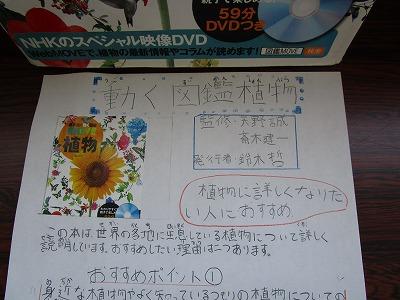 親子で楽しめる
59分
DVDつき
NHKのスペシャル映像DVD
WebMOVEで、植物の最新情報やコラムが読めます!
図鑑MOVE 検索
動く図鑑植物
監修・天野誠
斎木建一
発行者・鈴木哲
植物
植物に詳しくなりた
い人におすすめ
この本は、世界の各地に生息している植物について詳しく
説明しています。おすすめしたい理由は二つあります。
おすすめポイント①
身近な植物やよく知っているつもりの植物についての